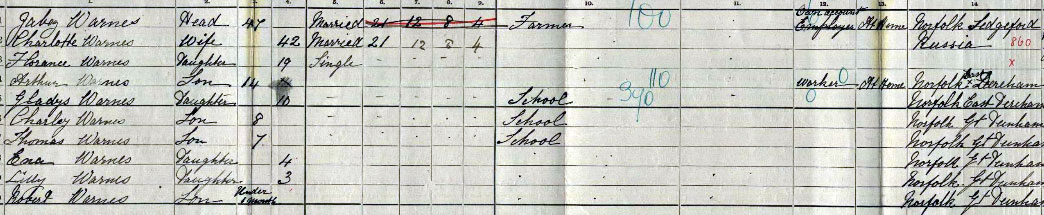 Jabez Warnes Head 47 Married 21 12 8 4 Farmer 100 Own account Employer At Home Norfolk Sedgeford
Charlotte Warnes Wife 42 Married 21 12 8 4 Russia 860
Florance Warnes Daughter 19 Single x
Arthur Warnes Son 14 110 Worker 0 At Home Norfolk East Dereham
Gladys Warnes Daughter 10 School 390 0 Norfolk East Dereham
Charley Warnes Son 8 School Norfolk Gt Dunham
Thomas Warnes Son 7 School Norfolk Gt Dunham
Ena Warnes Daughter 4 Norfolk Gt Dunham
Lilly Warnes Daughter 3 Norfolk Gt Dunham
Robert Warnes Son Under 1 Month Norfolk Gt Dunham